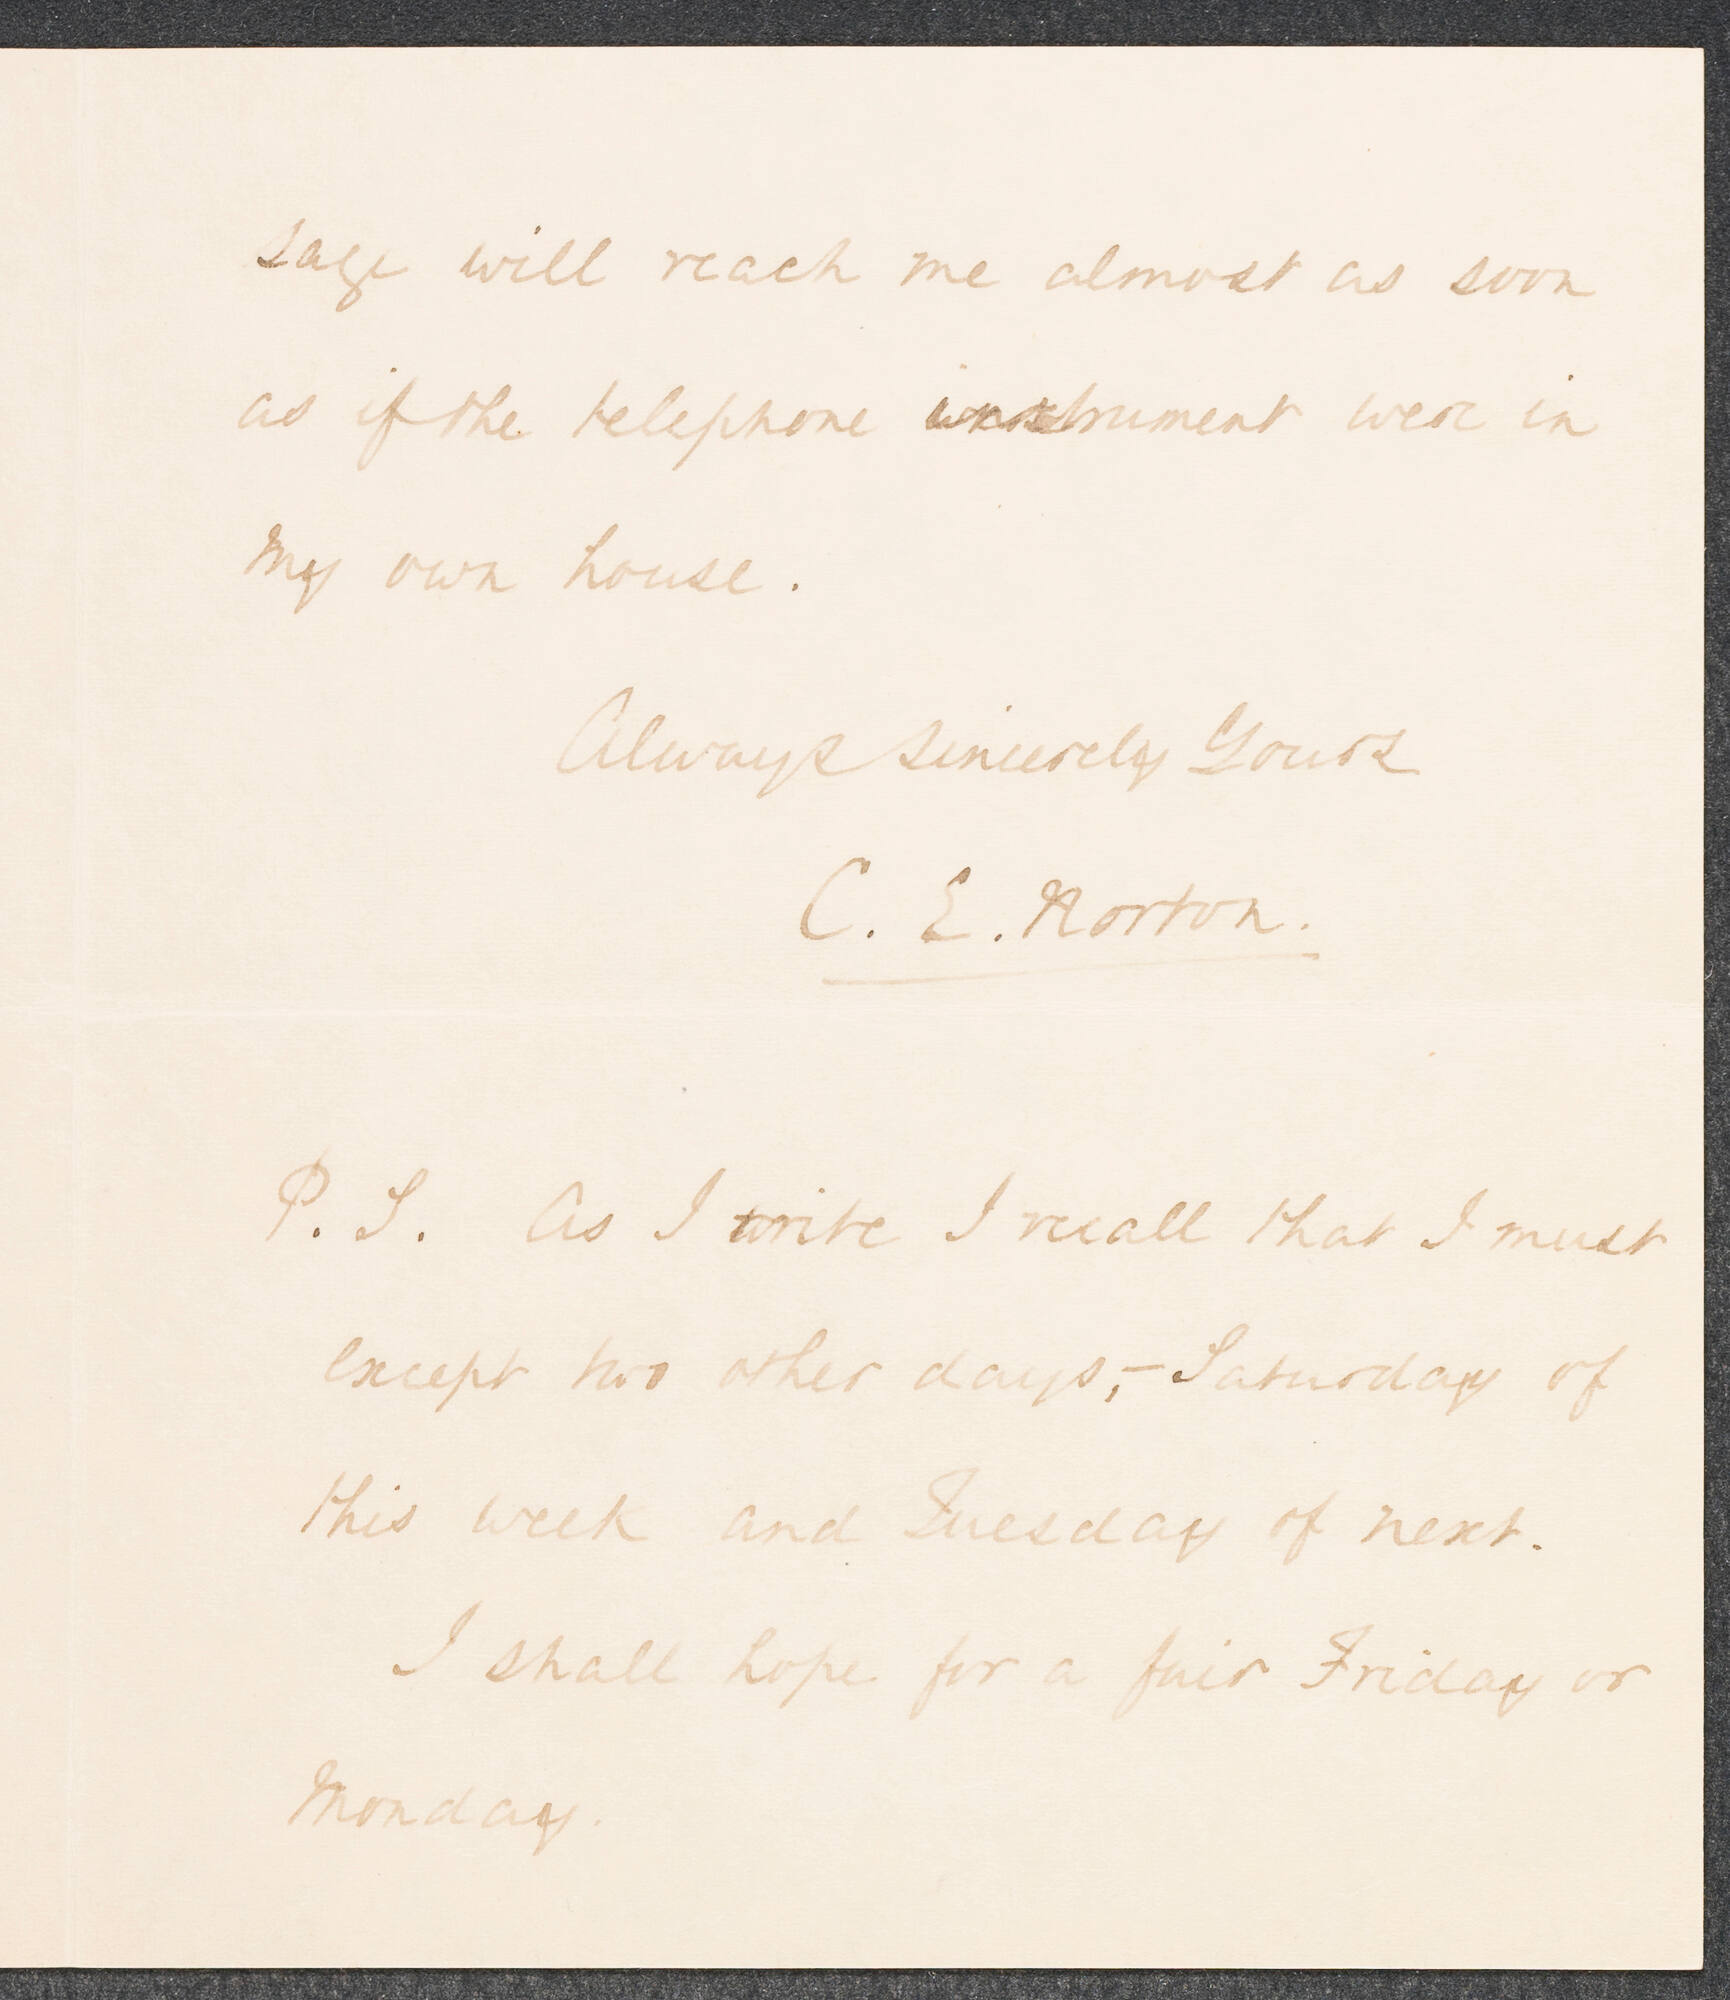 sage will reach me almost as soon
as if the telephone instrument were in
my own house.
Always sincerely Yours
C. E. Norton.
P. S. As I write I recall that I must
except two other days,—Saturday of
this week and Tuesday of next.
I shall hope for a fair Friday or
Monday.